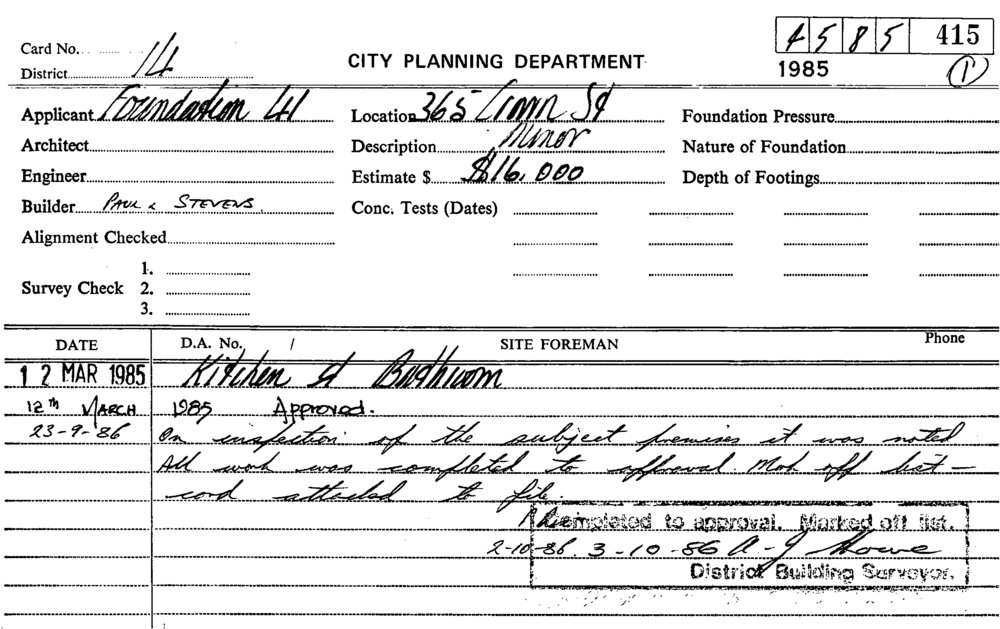 4 5 8 5 415
Card No.
District 14
CITY PLANNING DEPARTMENT
1985 1
Applicant Foundation 41
Location 365 Crown St
Foundation Pressure
Architect
Description Minor
Nature of Foundation
Engineer
Estimate $ $16,000
Depth of Footings
Builder PAUL & STEVENS.
Conc. Tests (Dates)
Alignment Checked
1.
Survey Check 2.
3.
DATE D.A. No. / SITE FOREMAN Phone
12 MAR 1985 Kitchen & Bathroom
12th MARCH 1985 Approved.
23-9-86 On inspection of the subject premises it was noted
All work was completed to approval. Mark off list -
card attached to file.
Completed to approval. Marked off list.
2-10-86. 3-10-86 A. J Howe
District Building Surveyor.